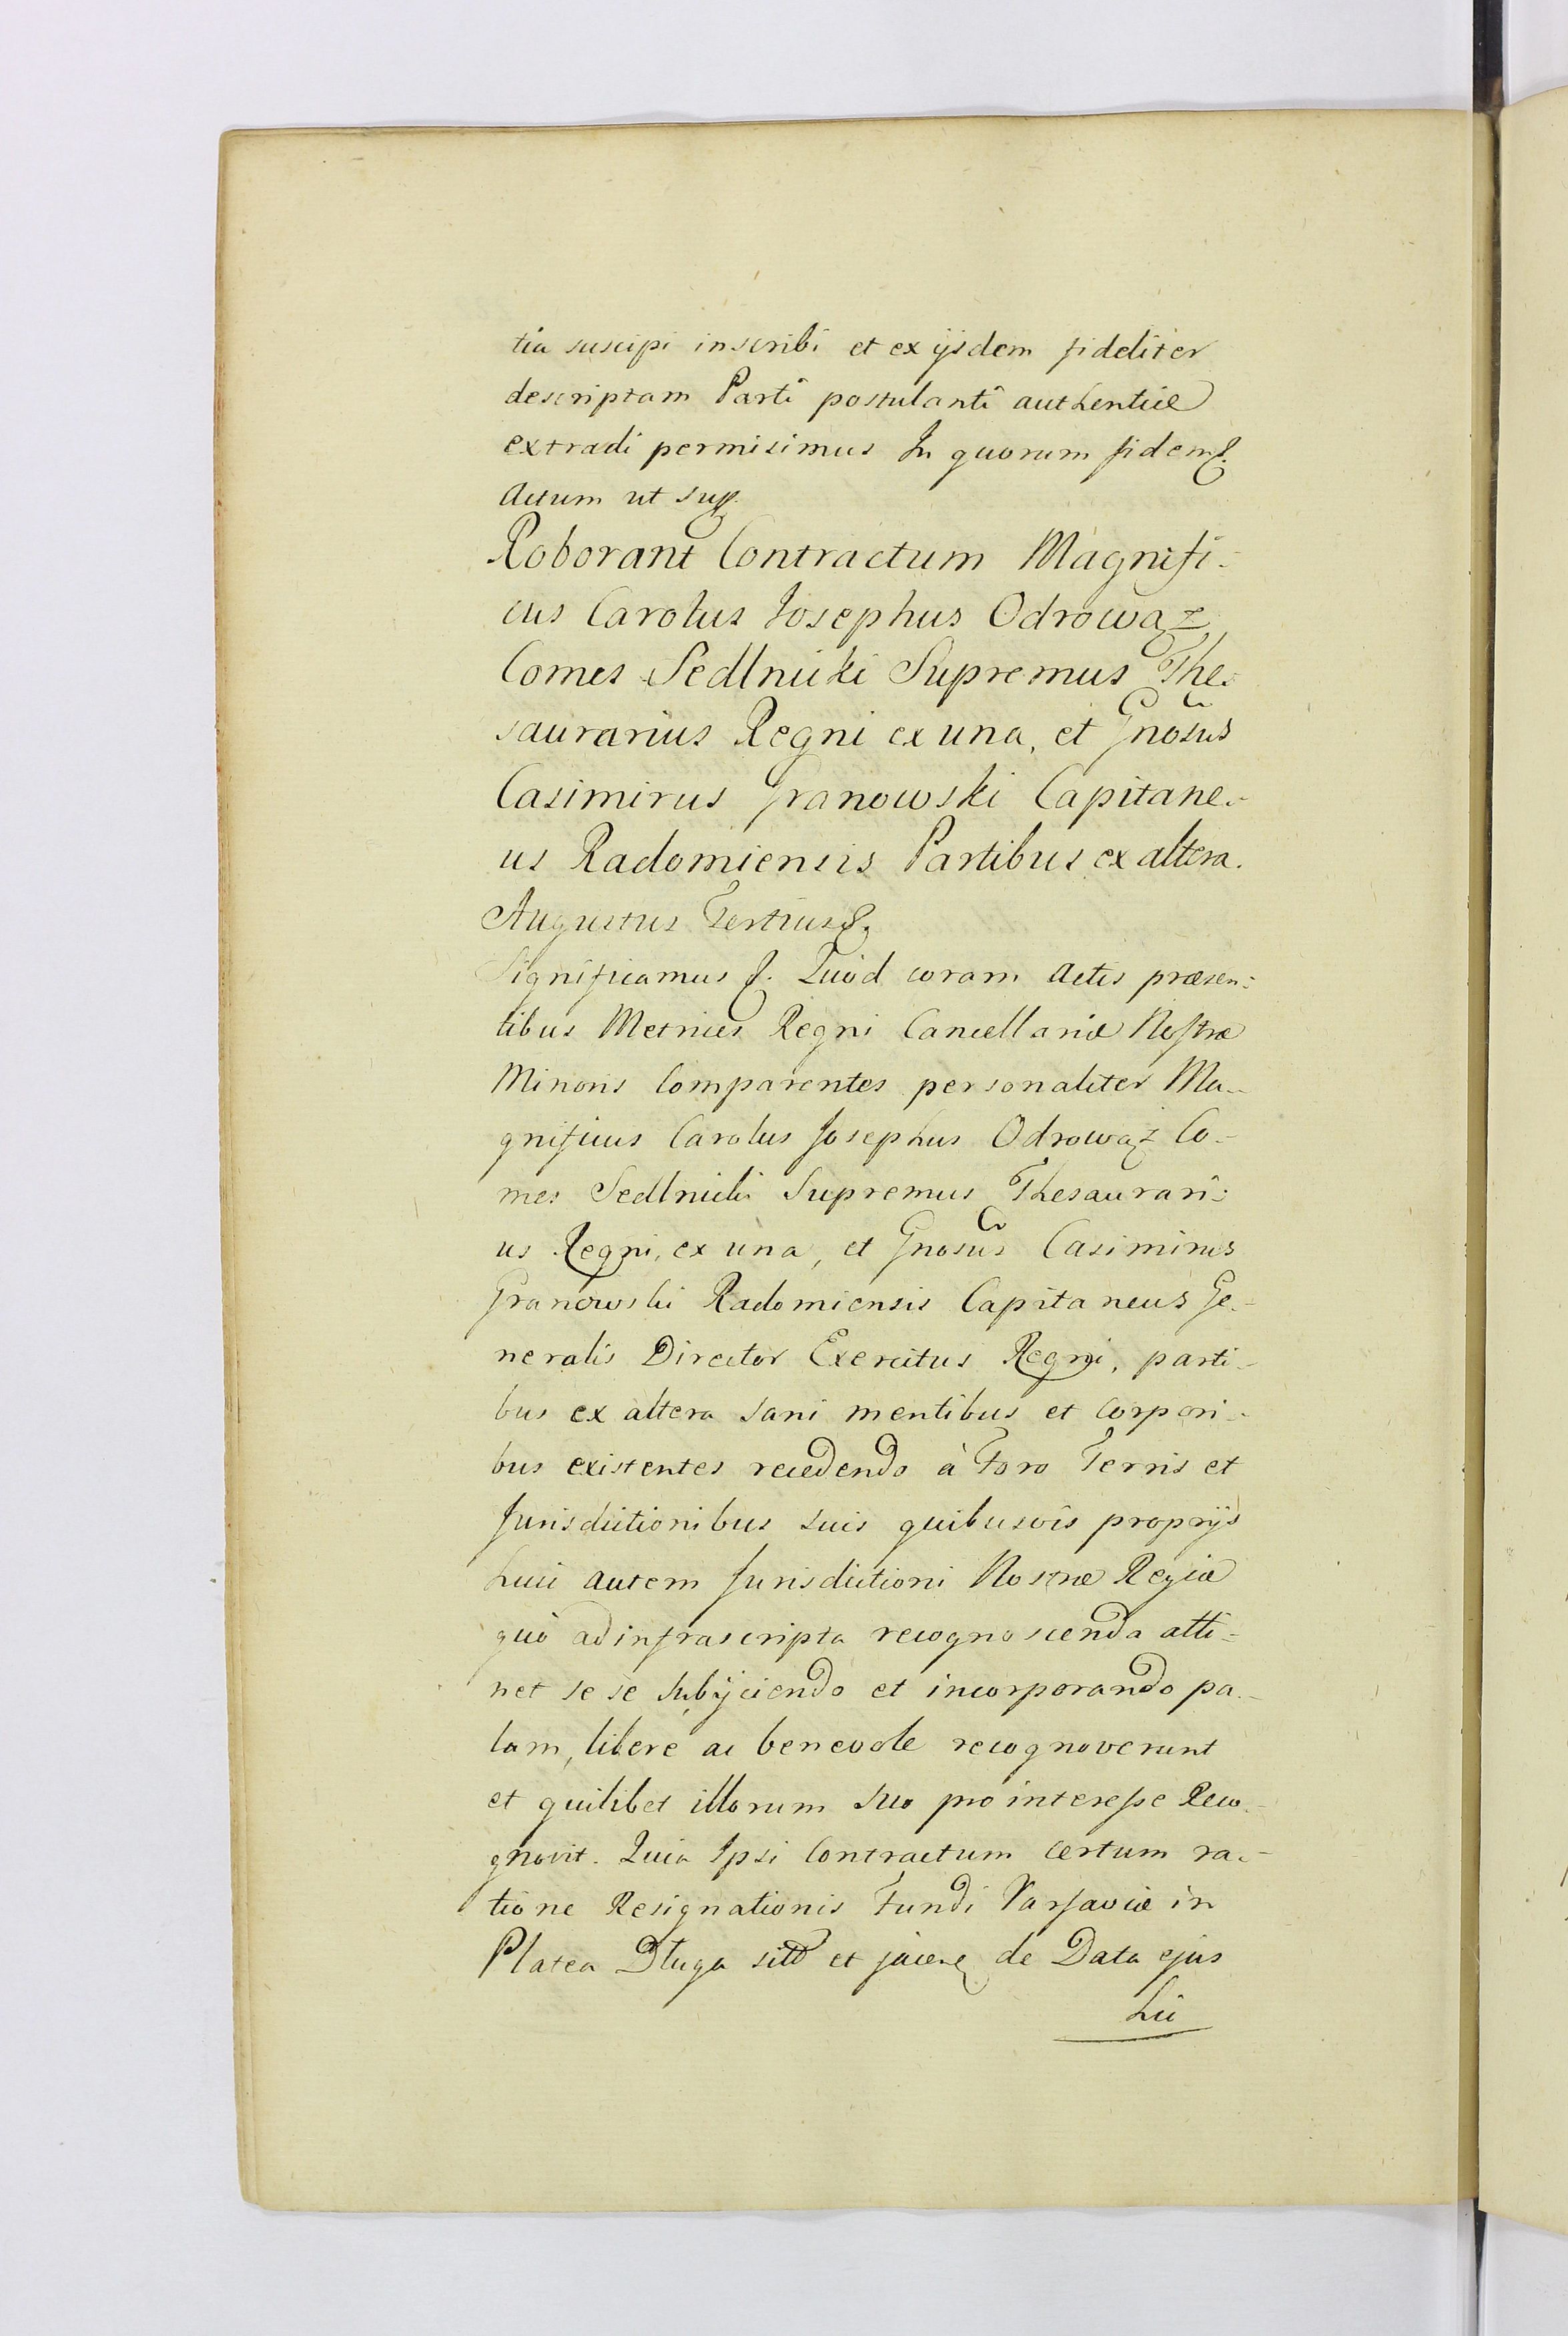 tia suscipi inscribi et ex ijsdem fideliter
descriptam Parti postulanti authenticè
extradi permisimus In quorum fidem &.
Actum ut sup.
Roborant Contractum Magnifi-
cus Carolus Josephus Odrowąz
Comes Sedlnicki Supremus The-
saurarius Regni ex una, et Gnosus
Casimirus Granowski Capitane-
us Radomiensis Partibus ex altera.
Augustus Tertius &.
Significamus &. Quod coram Actis præsen:
tibus Metrices Regni Cancellariæ Nostræ
Minoris Comparentes personaliter Ma-
gnificus Carolus Josephus Odrowąż Co-
mes Sedlnicki Supremus Thesaurari:
us Regni, ex una, et Gnosus Casimirus
Granowski Radomiensis Capitaneus Ge-
neralis Director Exercitus Regni, parti-
bus ex altera sani mentibus et corpori-
bus existentes recedendo à Foro Terris et
Jurisdictionibus suis quibusvis proprijs
huic autem Jurisdictioni Nostræ Regiæ
quò ad infrascripta recognoscenda atti-
net se se subijciendo et incorporando pa-
lam, liberè ac benevole recognoverunt
et quilibet illorum suo pro interesse Reco-
gnovit. Quia Ipsi Contractum certum ra-
tione Resignationis Fundi Varsaviæ in
Platea Długa siti et jacen de Data ejus
hic